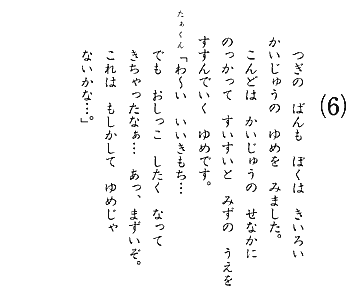 (6)
つぎの ばんも ぼくは きいろい
かいじゅうの ゆめを みました。
こんどは かいじゅうの せなかに
のっかって すいすいと みずの うえを
すすんでいく ゆめです。
たぁくん
「わ〜い いいきもち…
でも おしっこ したく なって
きちゃったなぁ… あっ、まずいぞ。
これは もしかして ゆめじゃ
ないかな…」。